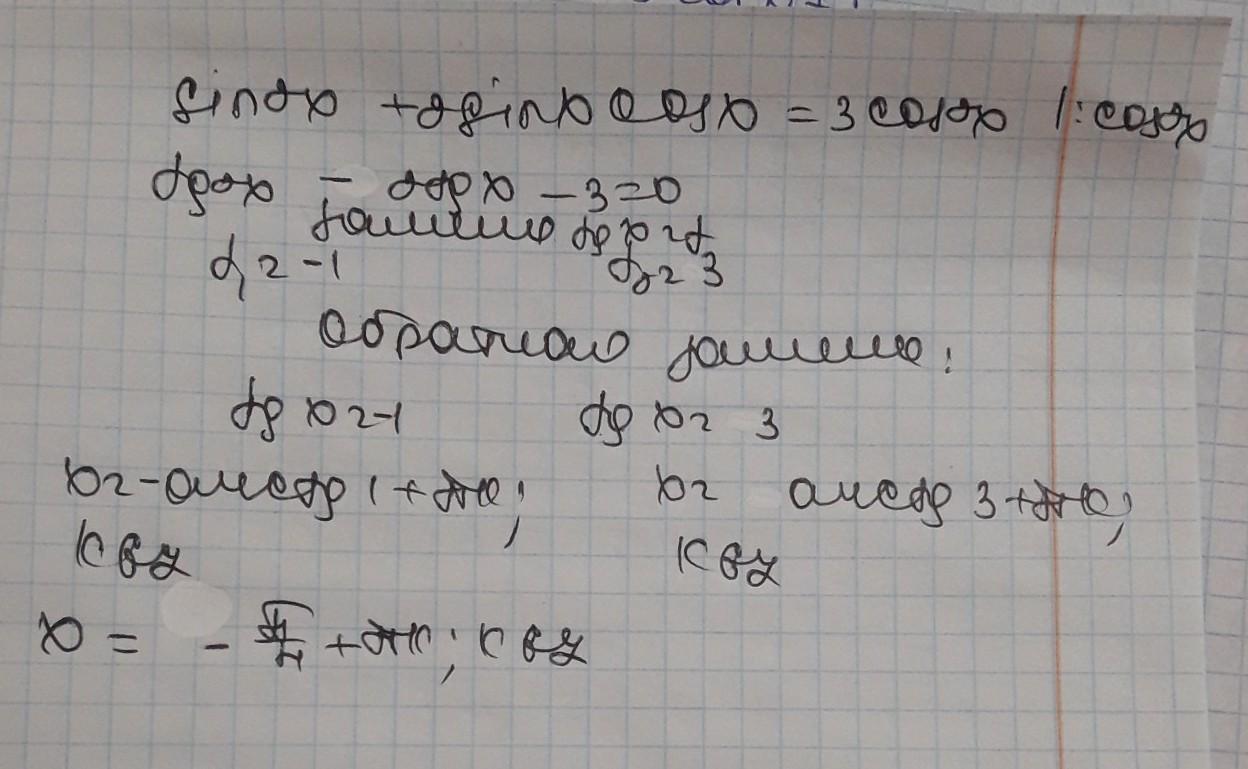 sin²x + 2sinx cosx = 3cos²x |:cos²x
tg²x - 2tgx - 3=0
замена tg x = t
t₁ = -1 t₂ = 3
Обратная замена:
tg x = -1 tg x = 3
x = -arctg 1 + πk; x = arctg 3 + πk;
k ∈ Z k ∈ Z
x = - π/4 + πk; k ∈ Z